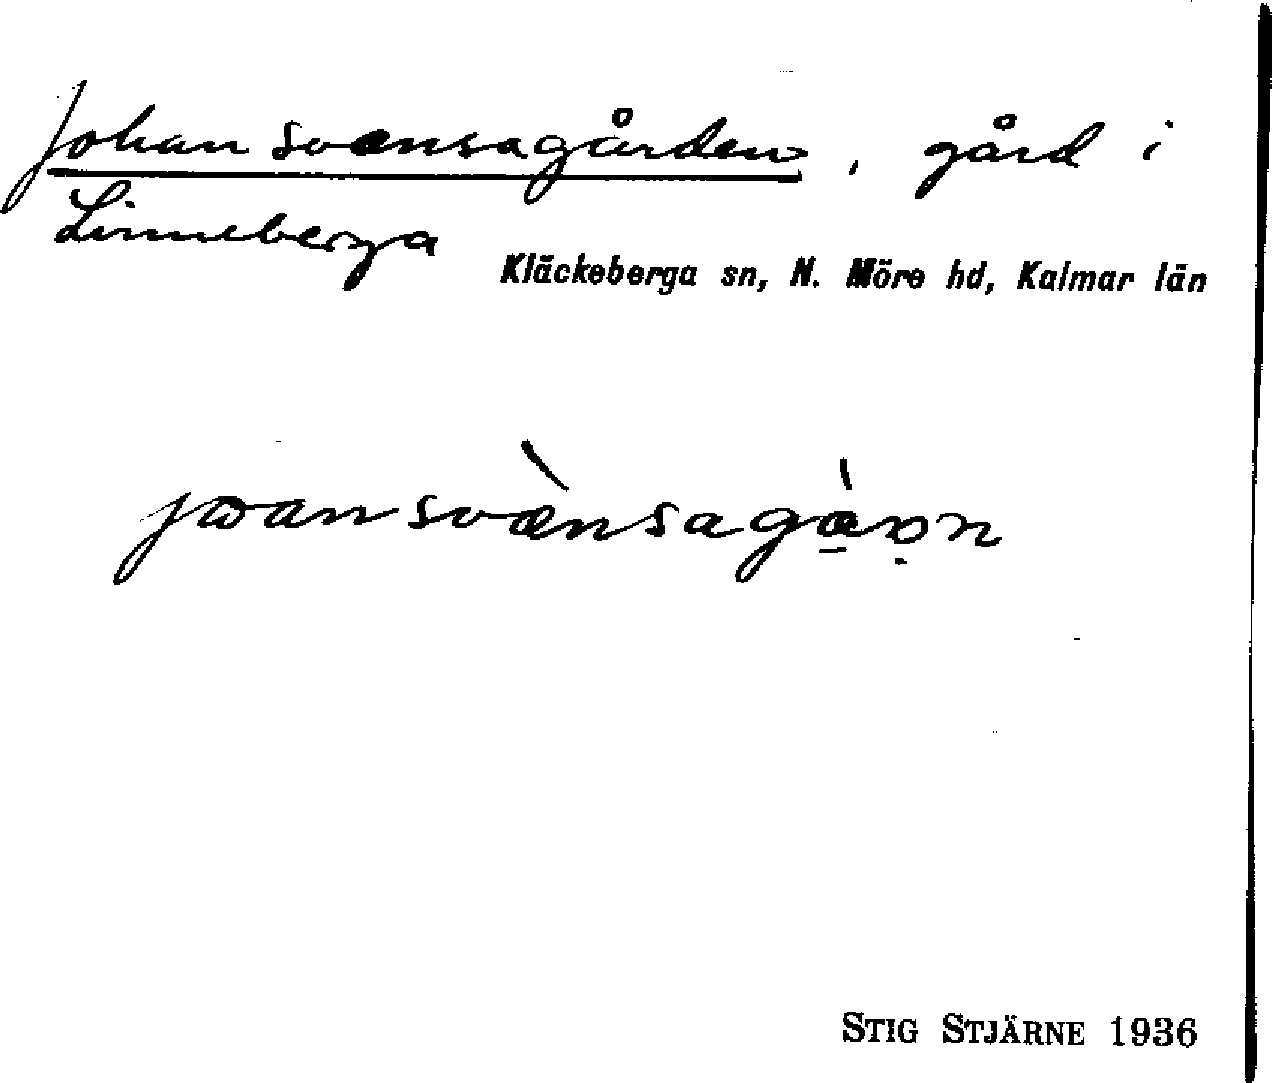 Johan Svænsagården, gård i
Linneberga
Kläckeberga sn, N. Möre hd, Kalmar län
STIG STJÄRNE 1936